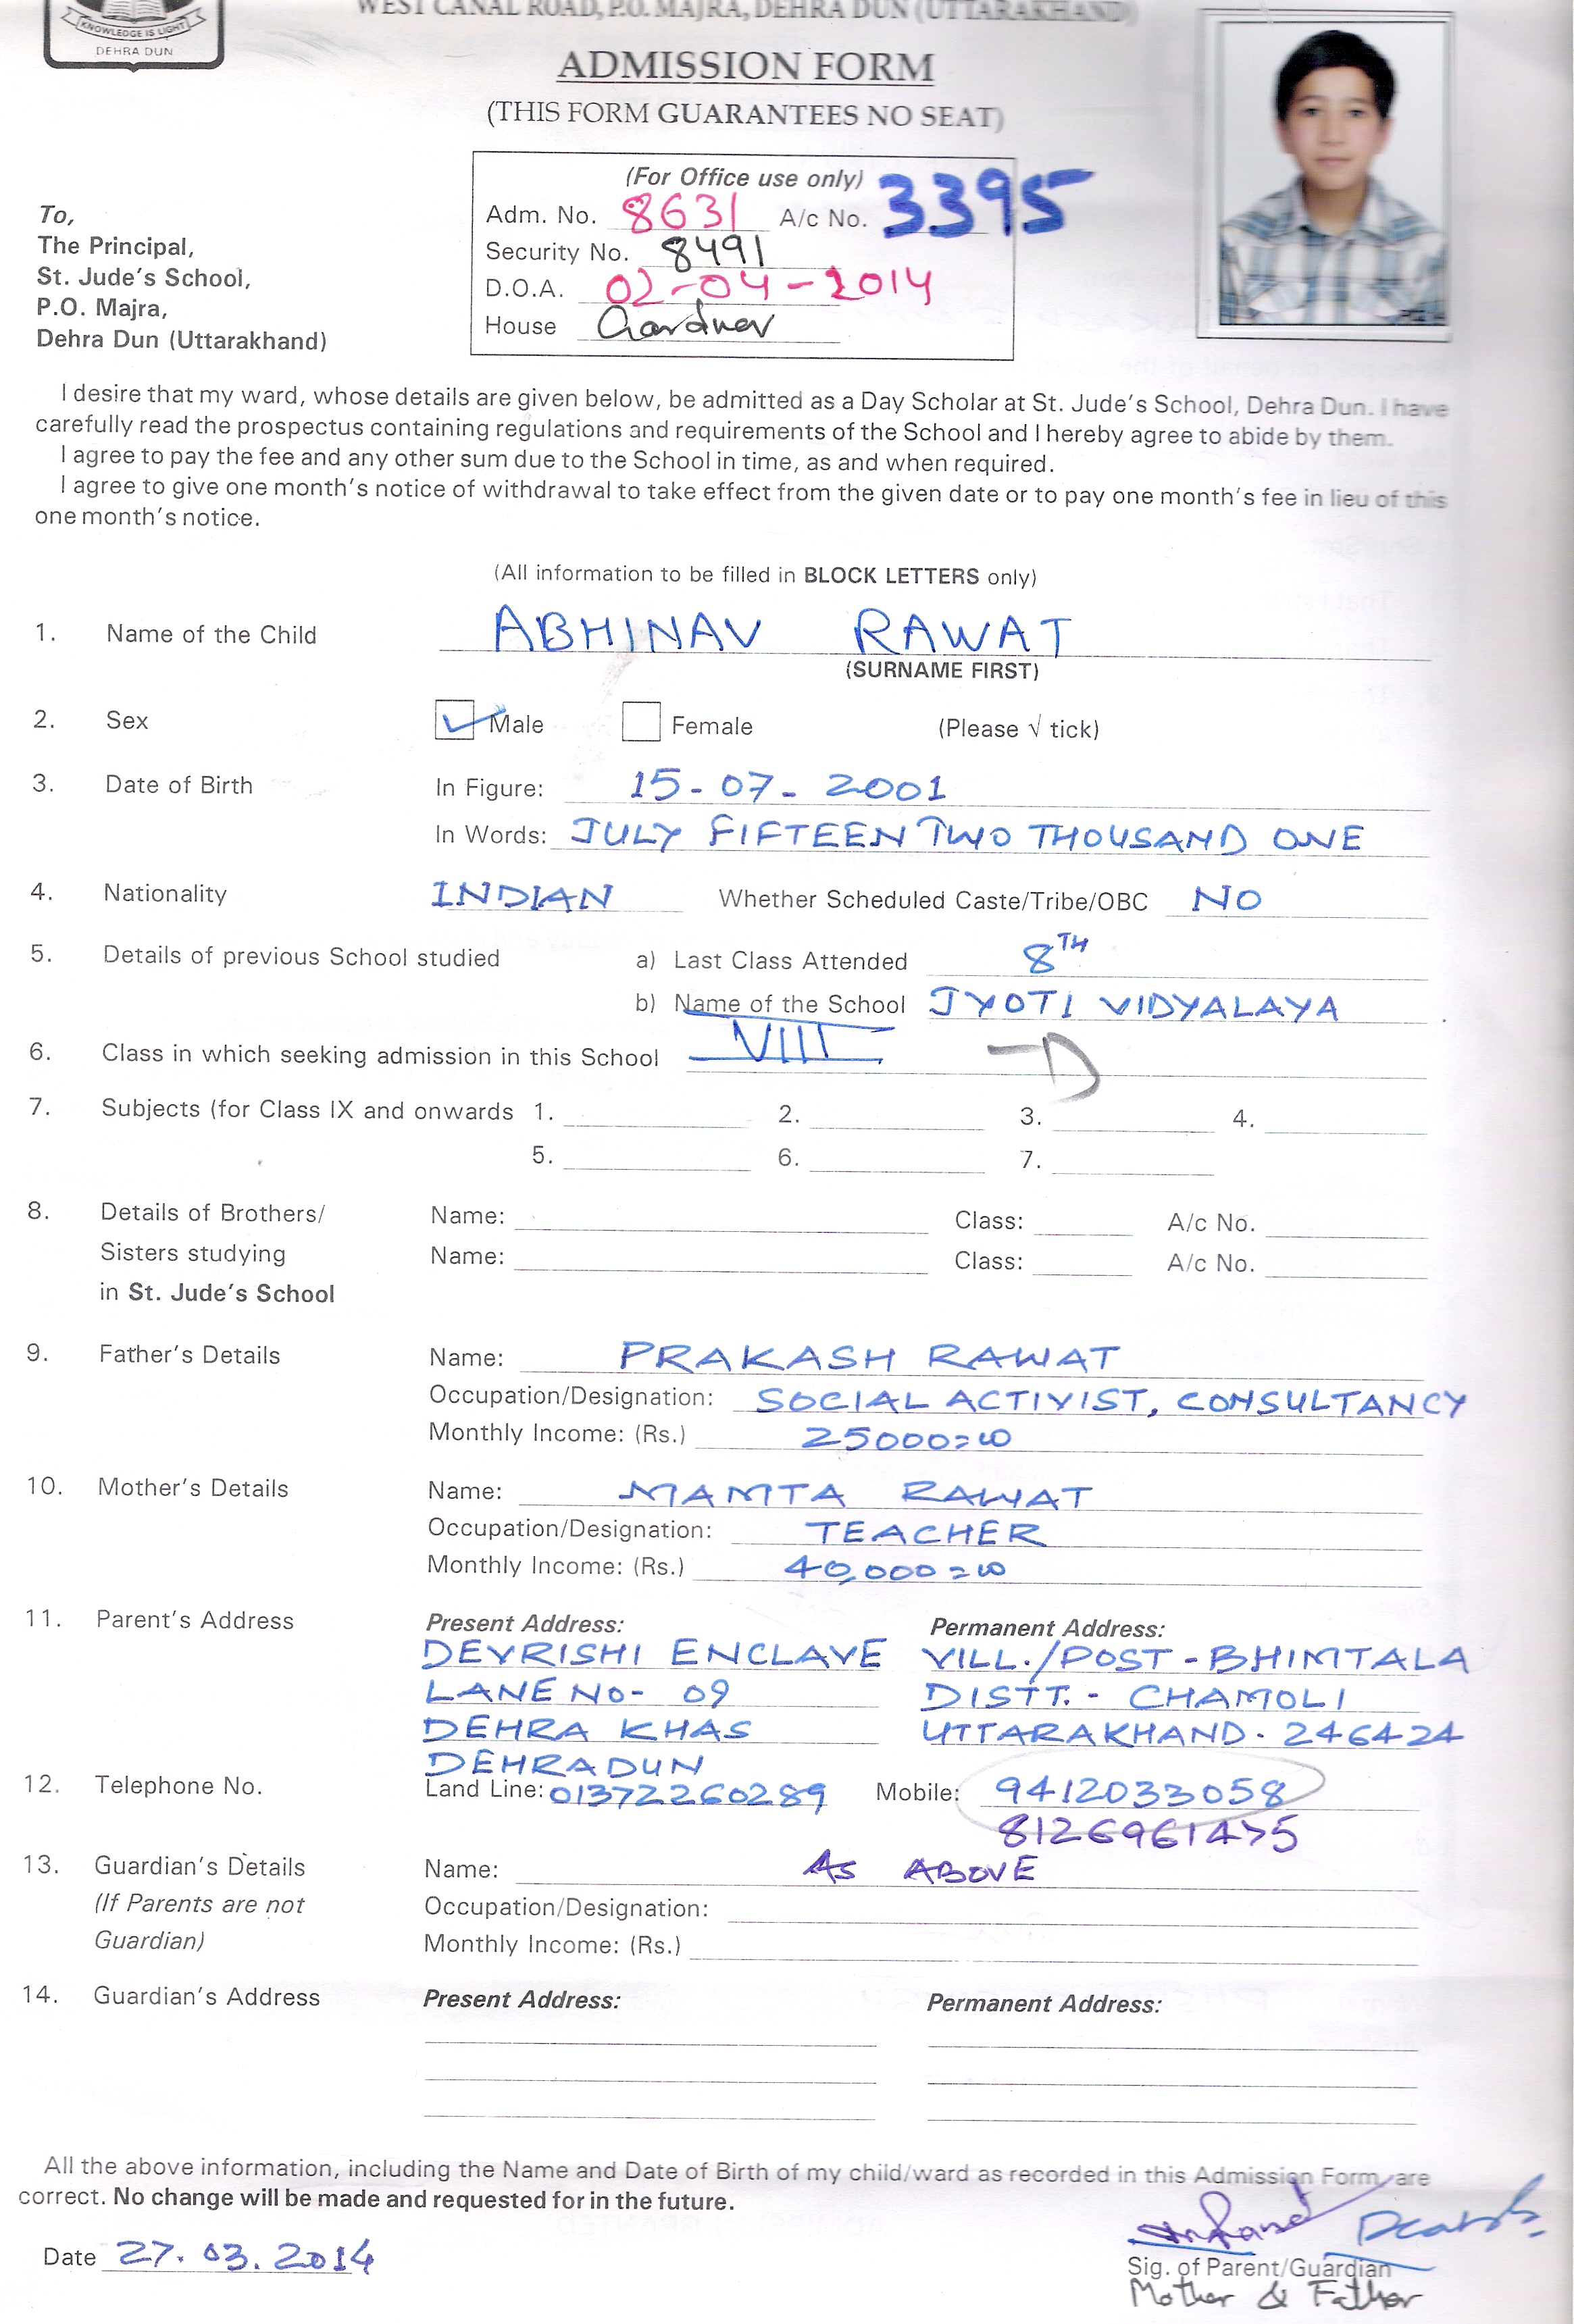 WEST CANAL ROAD, P.O. MAJRA, DEHRA DUN (UTTARAKHAND)
KNOWLEDGE IS LIGHT
DEHRA DUN
ADMISSION FORM
(THIS FORM GUARANTEES NO SEAT)
(For Office use only)
Adm. No. 8631 A/c No. 3395
Security No. 8491
D.O.A. 02-04-2014
House Gardner
To,
The Principal,
St. Jude's School,
P.O. Majra,
Dehra Dun (Uttarakhand)
I desire that my ward, whose details are given below, be admitted as a Day Scholar at St. Jude's School, Dehra Dun. I have
carefully read the prospectus containing regulations and requirements of the School and I hereby agree to abide by them.
I agree to pay the fee and any other sum due to the School in time, as and when required.
I agree to give one month's notice of withdrawal to take effect from the given date or to pay one month's fee in lieu of this
one month's notice.
(All information to be filled in BLOCK LETTERS only)
1. Name of the Child ABHINAV RAWAT
(SURNAME FIRST)
2. Sex Male Female (Please √ tick)
3. Date of Birth In Figure: 15-07-2001
In Words: JULY FIFTEEN TWO THOUSAND ONE
4. Nationality INDIAN Whether Scheduled Caste/Tribe/OBC NO
5. Details of previous School studied a) Last Class Attended 8TH
b) Name of the School JYOTI VIDYALAYA
6. Class in which seeking admission in this School VIII -D
7. Subjects (for Class IX and onwards 1. 2. 3. 4.
5. 6. 7.
8. Details of Brothers/ Name: Class: A/c No.
Sisters studying Name: Class: A/c No.
in St. Jude's School
9. Father's Details Name: PRAKASH RAWAT
Occupation/Designation: SOCIAL ACTIVIST, CONSULTANCY
Monthly Income: (Rs.) 25000=00
10. Mother's Details Name: MAMTA RAWAT
Occupation/Designation: TEACHER
Monthly Income: (Rs.) 40,000=00
11. Parent's Address Present Address: Permanent Address:
DEVRISHI ENCLAVE VILL./POST-BHIMTALA
LANE No- 09 DISTT.- CHAMOLI
DEHRA KHAS UTTARAKHAND. 246424
DEHRADUN
12. Telephone No. Land Line: 01372260289 Mobile: 9412033058
8126961475
13. Guardian's Details Name: As ABOVE
(If Parents are not Occupation/Designation:
Guardian) Monthly Income: (Rs.)
14. Guardian's Address Present Address: Permanent Address:
All the above information, including the Name and Date of Birth of my child/ward as recorded in this Admission Form, are
correct. No change will be made and requested for in the future.
Date 27.03.2014
Sig. of Parent/Guardian
Mother & Father